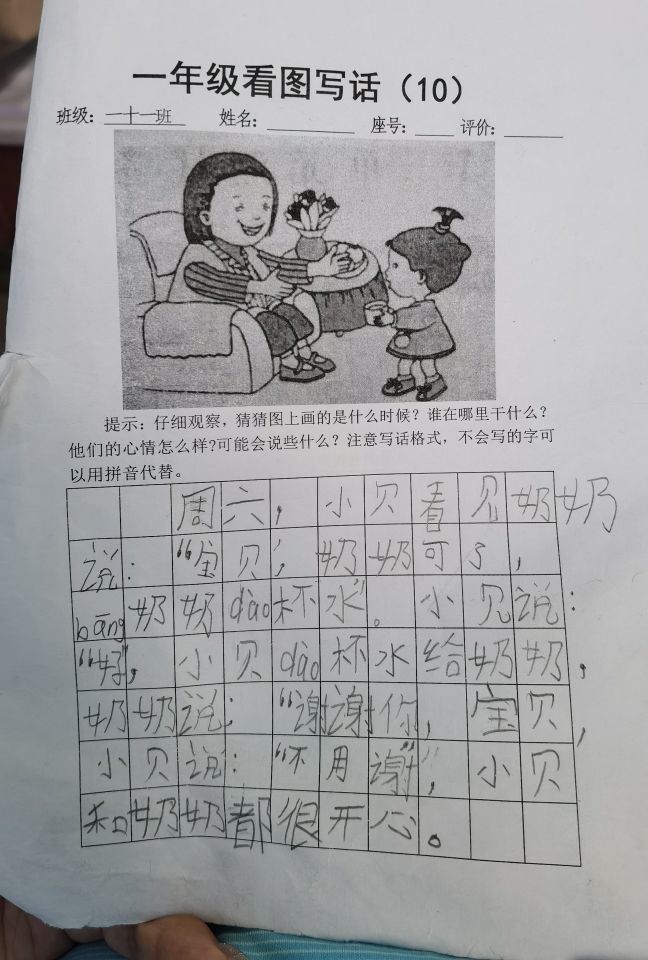 一年级看图写话（10）
班级：一十一班 姓名：________ 座号：____ 评价：______
提示：仔细观察，猜猜图上画的是什么时候？谁在哪里干什么？
他们的心情怎么样?可能会说些什么？注意写话格式，不会写的字可
以用拼音代替。
周六，小贝看见奶奶
说：“宝贝，奶奶可了，
bāng奶奶dào杯水”。小见说：
“好”，小贝dào杯水给奶奶，
奶奶说：“谢谢你，宝贝，
小贝说：“不用谢”，小贝
和奶奶都很开心。